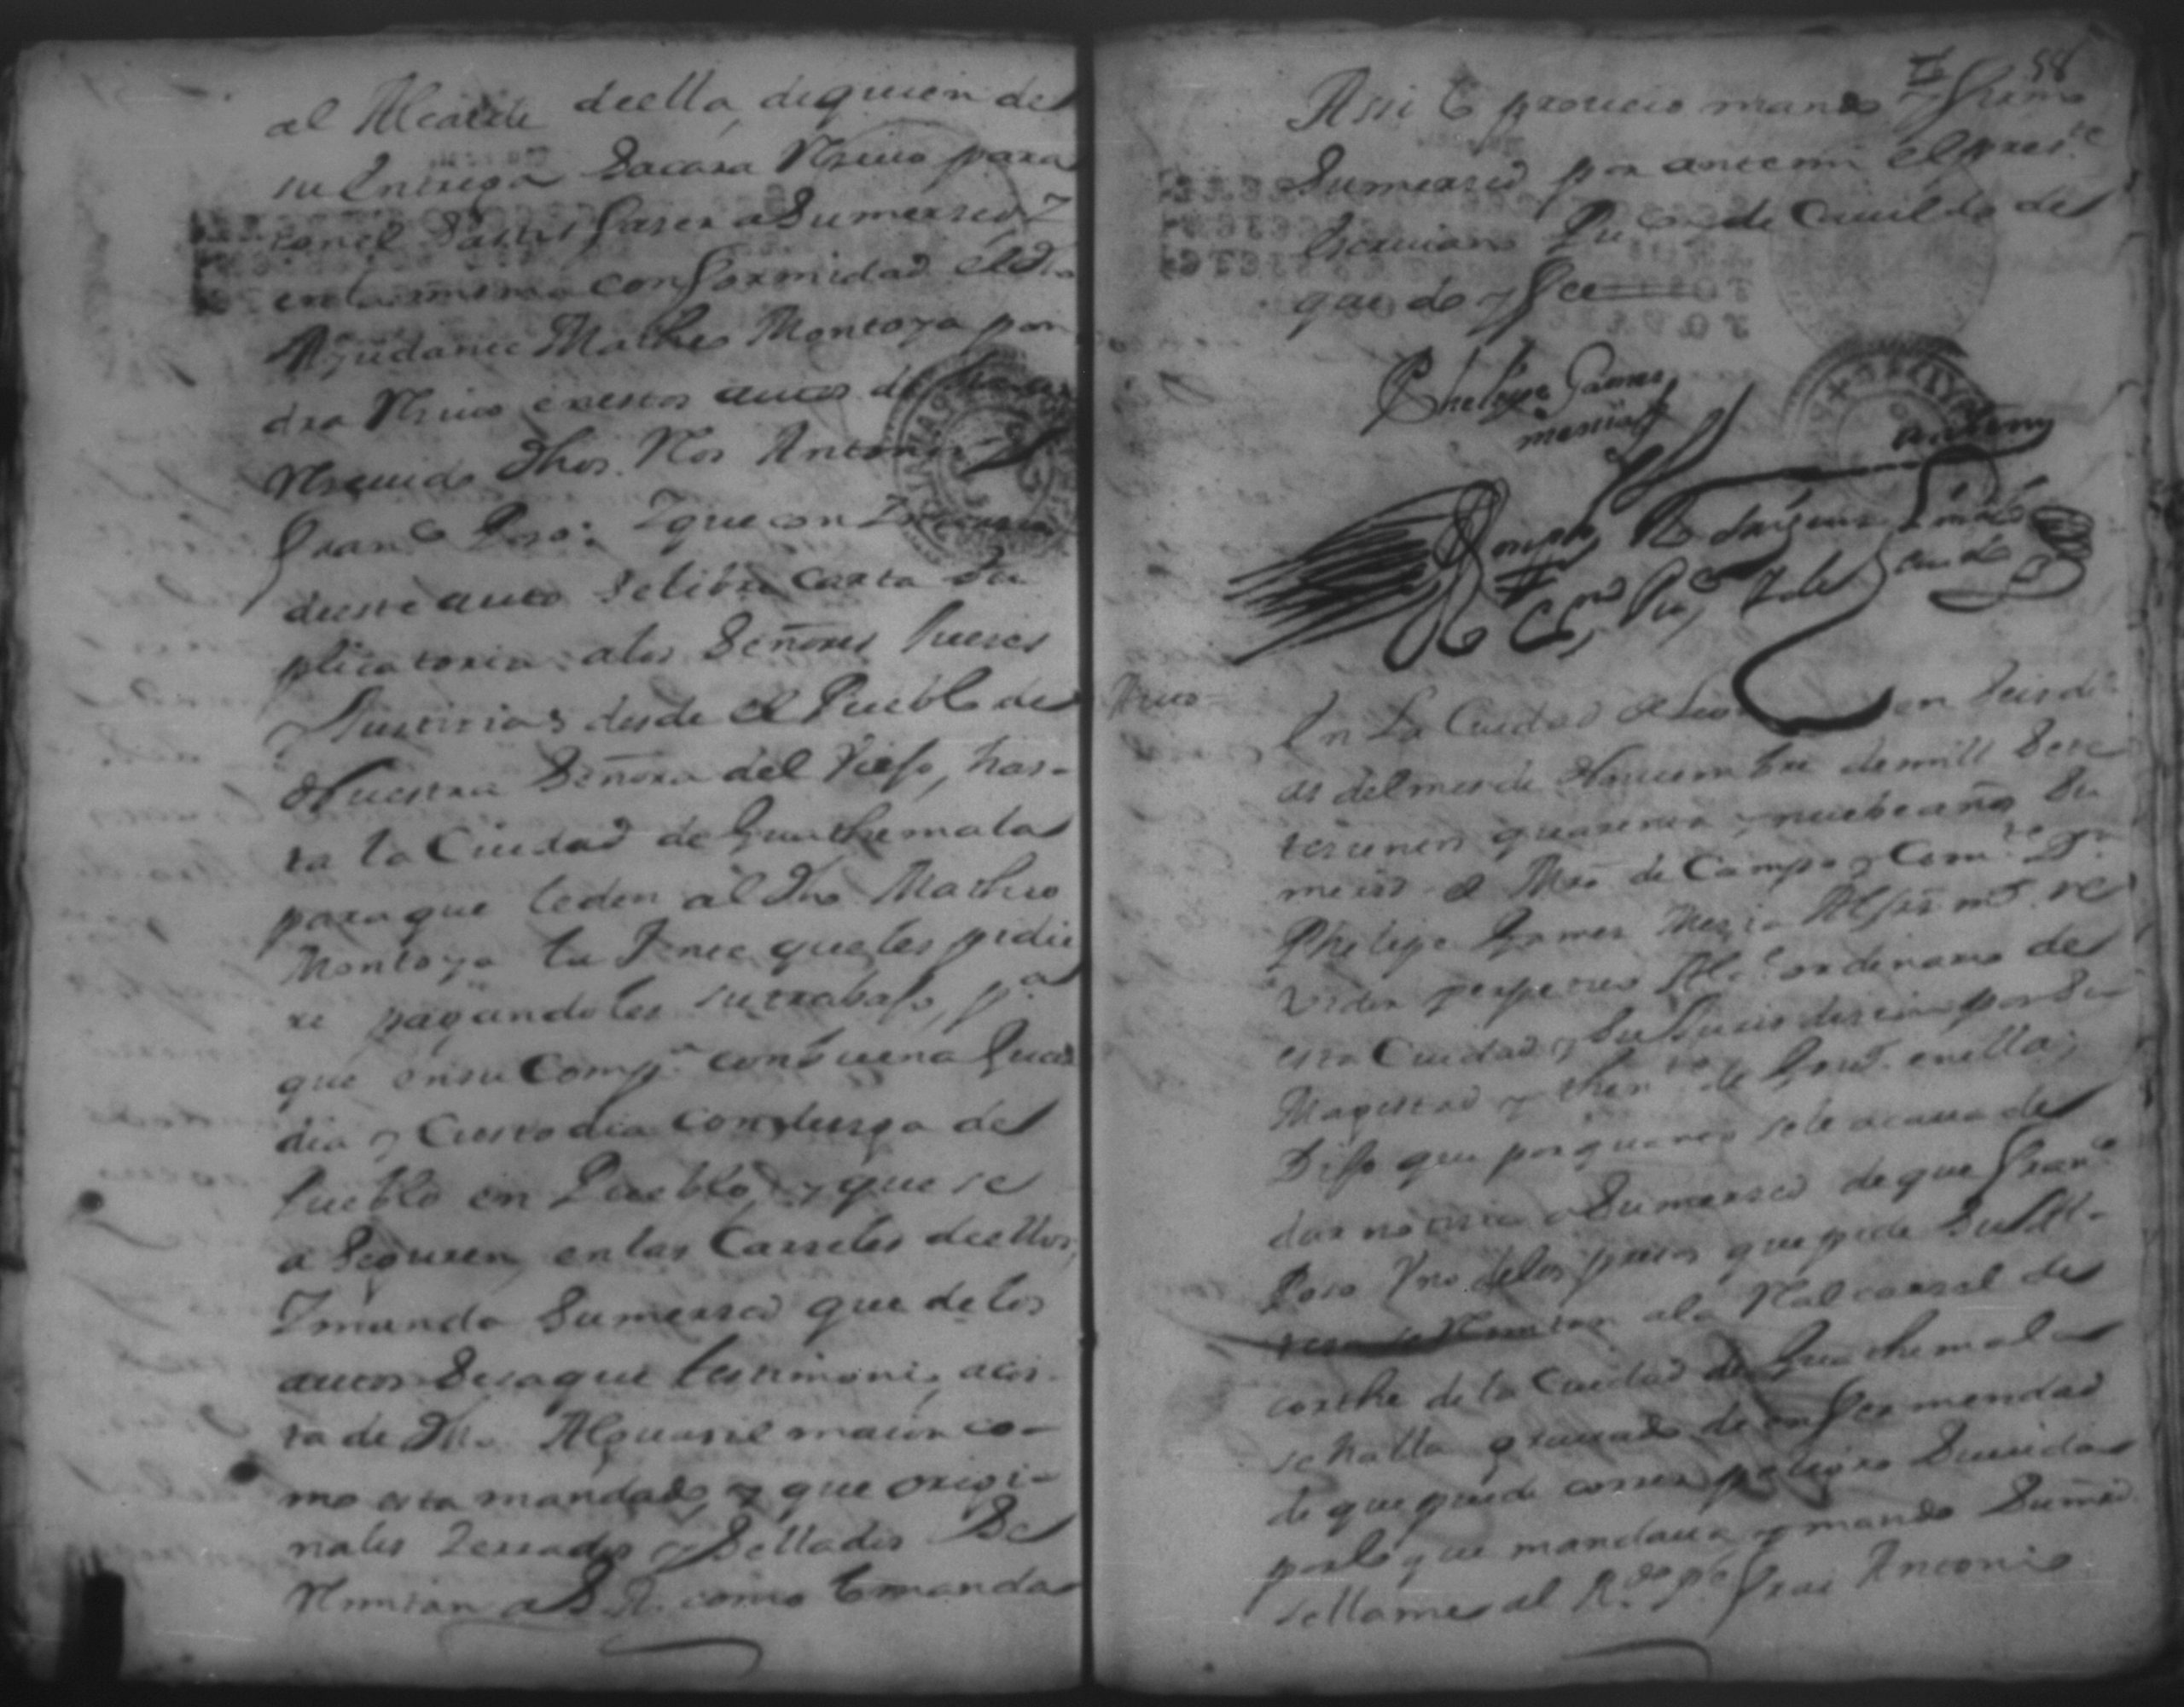 al Alcaide deella, dequien del
su Entrega Sacara Rsivo para
con el Satisfaser aSumerced Y
enla misma conformidad el dho
Ayudante Matheo Montoya pon
dra Rsivo enestos autos de haver
Rsevido dhos Ros Antonio y
Fran.co Poso: Y que con
deeste auto Selibre Carta Su
plicatoria alos Señores Jueses
y Justicias desde el Pueblo de
Nuestra Señora del Viejo, has-
ta la Ciudad de Guathemala
paraque leden al dho Matheo
Montoya la Jente queles pidie
re pagandoles sutrabajo, p.a
que ensu Comp.a conbuena Guar
dia y Custodia conduzga del
Pueblo en Pueblo, y que se
aSeguren en las Carseles deellos,
Ymanda Sumerced que delos
autos Sesaque testimonio acos-
ta de dho Alguasil maior co-
mo esta mandado, y que origi-
nales Zerrados y Sellados Se
Rmitan a S.A. como lo manda
58
Assi lo proveio mando y firmo
Sumerced por antemi el pres.te
Escrivano Pu.co y de Cavildo de
que doy fee
Phelipe Gamez
mesia
antemy
En La Ciudad de Leon en Seis di-
as delmes de Noviembre demill Sete
sientos quarenta y nuebe años Su
merced el Mro de Campo y Com.te D.n
Phelipe Gamez Mezia Alfrz m.r re
xidor y perpetuo Alc.e ordinario de
esta Ciudad y Su Jurisdiscion por Su
Magestad y then.te de Gov.r en ella;
Dijo que por quanto sele acava de
dar noticia aSumerced de que Fran.co
Poso Vno delos presos que pide Su Al-
teza se Rmitan ala Rl carsel de
corthe de la Ciudad de Guathemala
se halla gravado de enfermedad
de que puede correr peligro Suvida
por lo que mandava y mando Sumrd
sellame al R.do p.e Frai Antonio